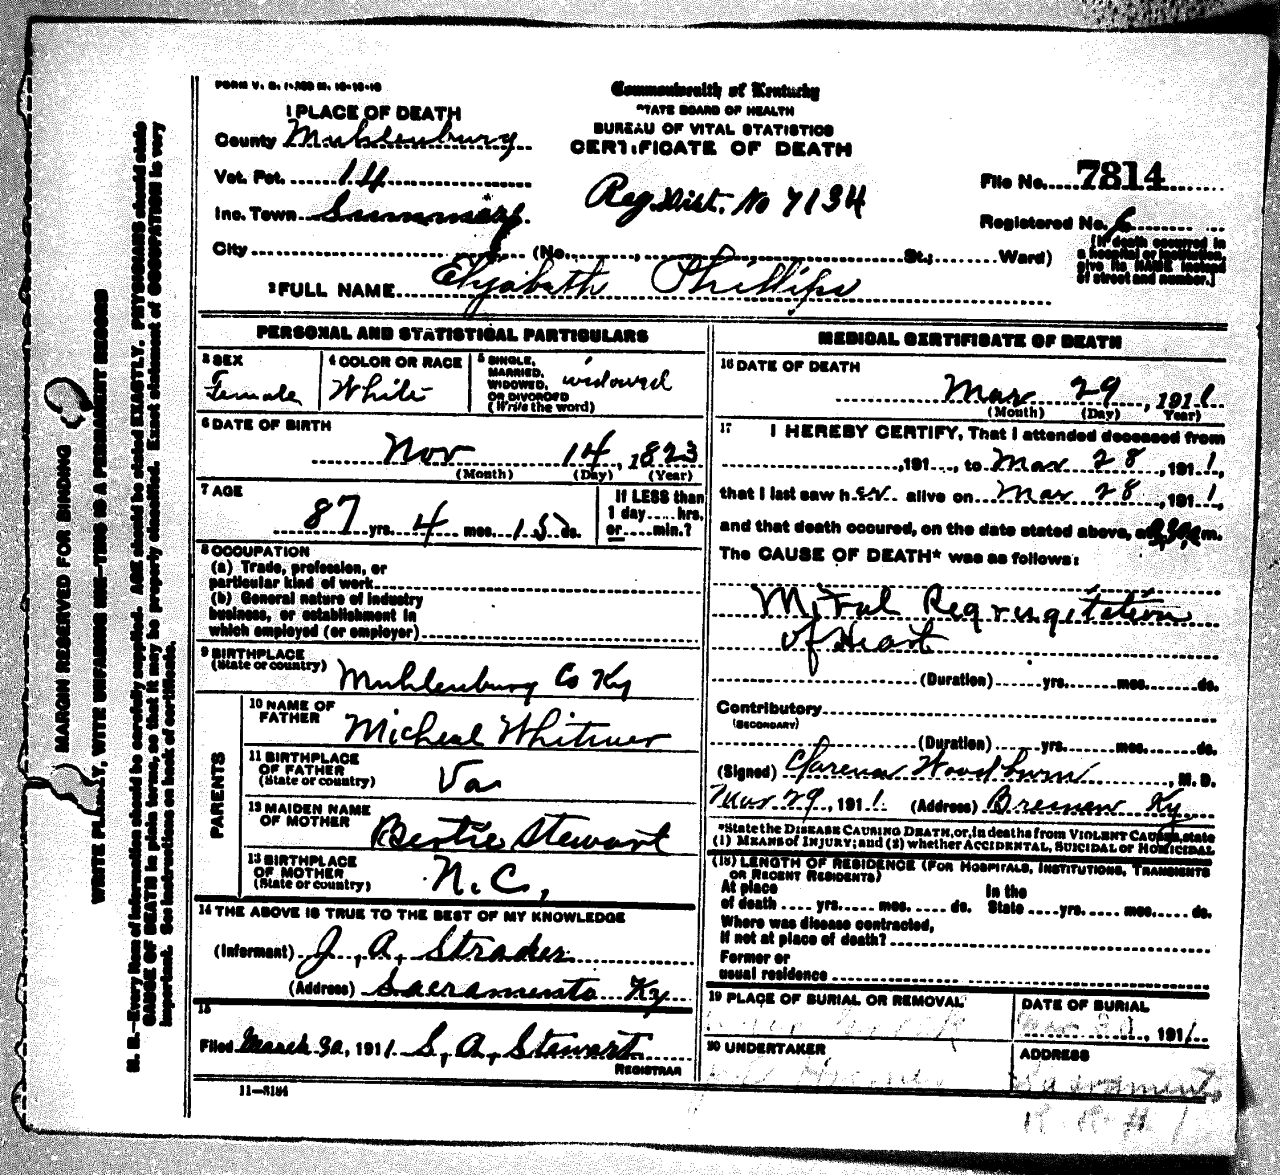 FORM V. S. 1-
Commonwealth of Kentucky
STATE BOARD OF HEALTH
BUREAU OF VITAL STATISTICS
CERTIFICATE OF DEATH
1 PLACE OF DEATH
County Muhlenburg
Vot. Pct. 14
Inc. Town
City (No. , St.; Ward)
Reg. Dist. No 7134
File No. 7814
Registered No. 6
[If death occurred in
a hospital or institution,
give its NAME instead
of street and number.]
2 FULL NAME Elizabeth Phillips
PERSONAL AND STATISTICAL PARTICULARS
3 SEX
Female
4 COLOR OR RACE
White
5 SINGLE,
MARRIED,
WIDOWED,
OR DIVORCED
(Write the word)
widowed
6 DATE OF BIRTH
Nov 14, 1823
(Month) (Day) (Year)
7 AGE
87 yrs. 4 mos. 15 ds.
If LESS than
1 day .... hrs.
or .... min.?
8 OCCUPATION
(a) Trade, profession, or
particular kind of work
(b) General nature of industry
business, or establishment in
which employed (or employer)
9 BIRTHPLACE
(State or country)
Muhlenburg Co Ky
PARENTS
10 NAME OF
FATHER
Micheal Whitmer
11 BIRTHPLACE
OF FATHER
(State or country)
Va
12 MAIDEN NAME
OF MOTHER
Bertie Stewart
13 BIRTHPLACE
OF MOTHER
(State or country)
N.C,
14 THE ABOVE IS TRUE TO THE BEST OF MY KNOWLEDGE
(Informant) J, A, Strader
(Address) Sacramento Ky
15
Filed March 30, 1911. S, A, Stewart
REGISTRAR
11—3184
MEDICAL CERTIFICATE OF DEATH
16 DATE OF DEATH
Mar 29, 1911
(Month) (Day) (Year)
17 I HEREBY CERTIFY, That I attended deceased from
, 191 , to Mar 28, 1911,
that I last saw her alive on Mar 28, 1911,
and that death occured, on the date stated above, at m.
The CAUSE OF DEATH* was as follows:
Mitral Regrugitation
of Heart
(Duration) yrs. mos. ds.
Contributory
(SECONDARY)
(Duration) yrs. mos. ds.
(Signed) Clarence Woodburn, M. D.
Mar 29, 1911. (Address) Bremen Ky
*State the DISEASE CAUSING DEATH, or, in deaths from VIOLENT CAUSES, state
(1) MEANS of INJURY; and (2) whether ACCIDENTAL, SUICIDAL or HOMICIDAL
(18) LENGTH OF RESIDENCE (FOR HOSPITALS, INSTITUTIONS, TRANSIENTS
OR RECENT RESIDENTS)
At place
of death .... yrs. .... mos. .... ds.
In the
State .... yrs. .... mos. .... ds.
Where was disease contracted,
if not at place of death?
Former or
usual residence
19 PLACE OF BURIAL OR REMOVAL
DATE OF BURIAL
Mar 30, 1911
20 UNDERTAKER
ADDRESS
Sacramento
R. R. # 1
MARGIN RESERVED FOR BINDING
WRITE PLAINLY, WITH UNFADING INK—THIS IS A PERMANENT RECORD
N. B.—Every item of information should be carefully supplied. AGE should be stated EXACTLY. PHYSICIANS should state
CAUSE OF DEATH in plain terms, so that it may be properly classified. Exact statement of OCCUPATION is very
important. See instructions on back of certificate.